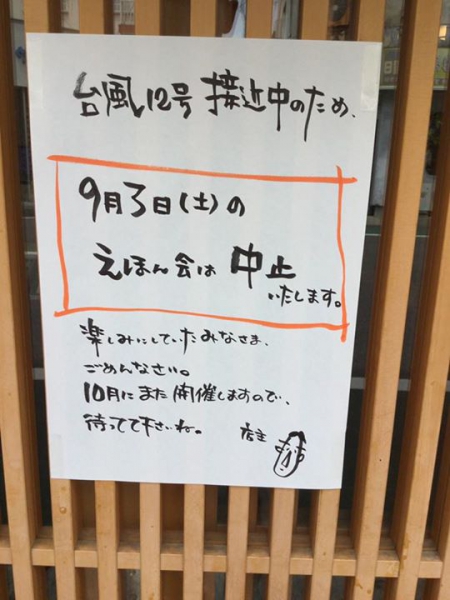 台風12号 接近中のため、
9月3日(土)の
えほん会は 中止
いたします。
楽しみにしていたみなさま、
ごめんなさい。
10月にまた開催しますので、
待ってて下さいね。
店主